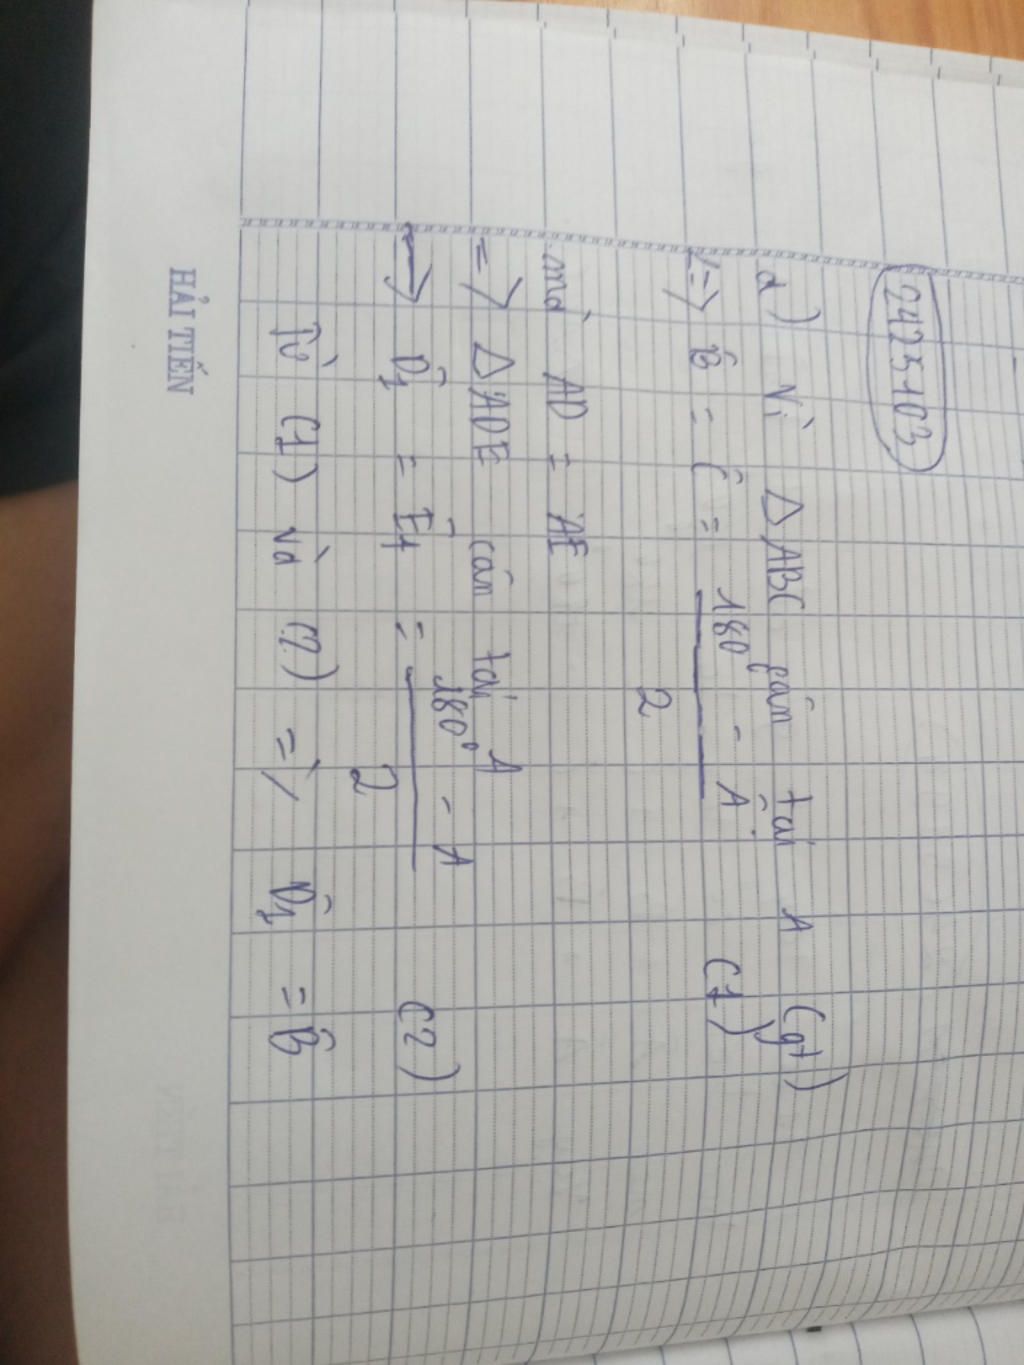 2425103
a) Vì △ABC cân tại A (gt)
=> B̂ = Ĉ = 180° - Â (1)
2
mà AD = AE
=> △ADE cân tại A
=> D̂₁ = Ê₁ = 180° - A (2)
2
Từ (1) và (2) => D̂₁ = B̂
HẢI TIẾN